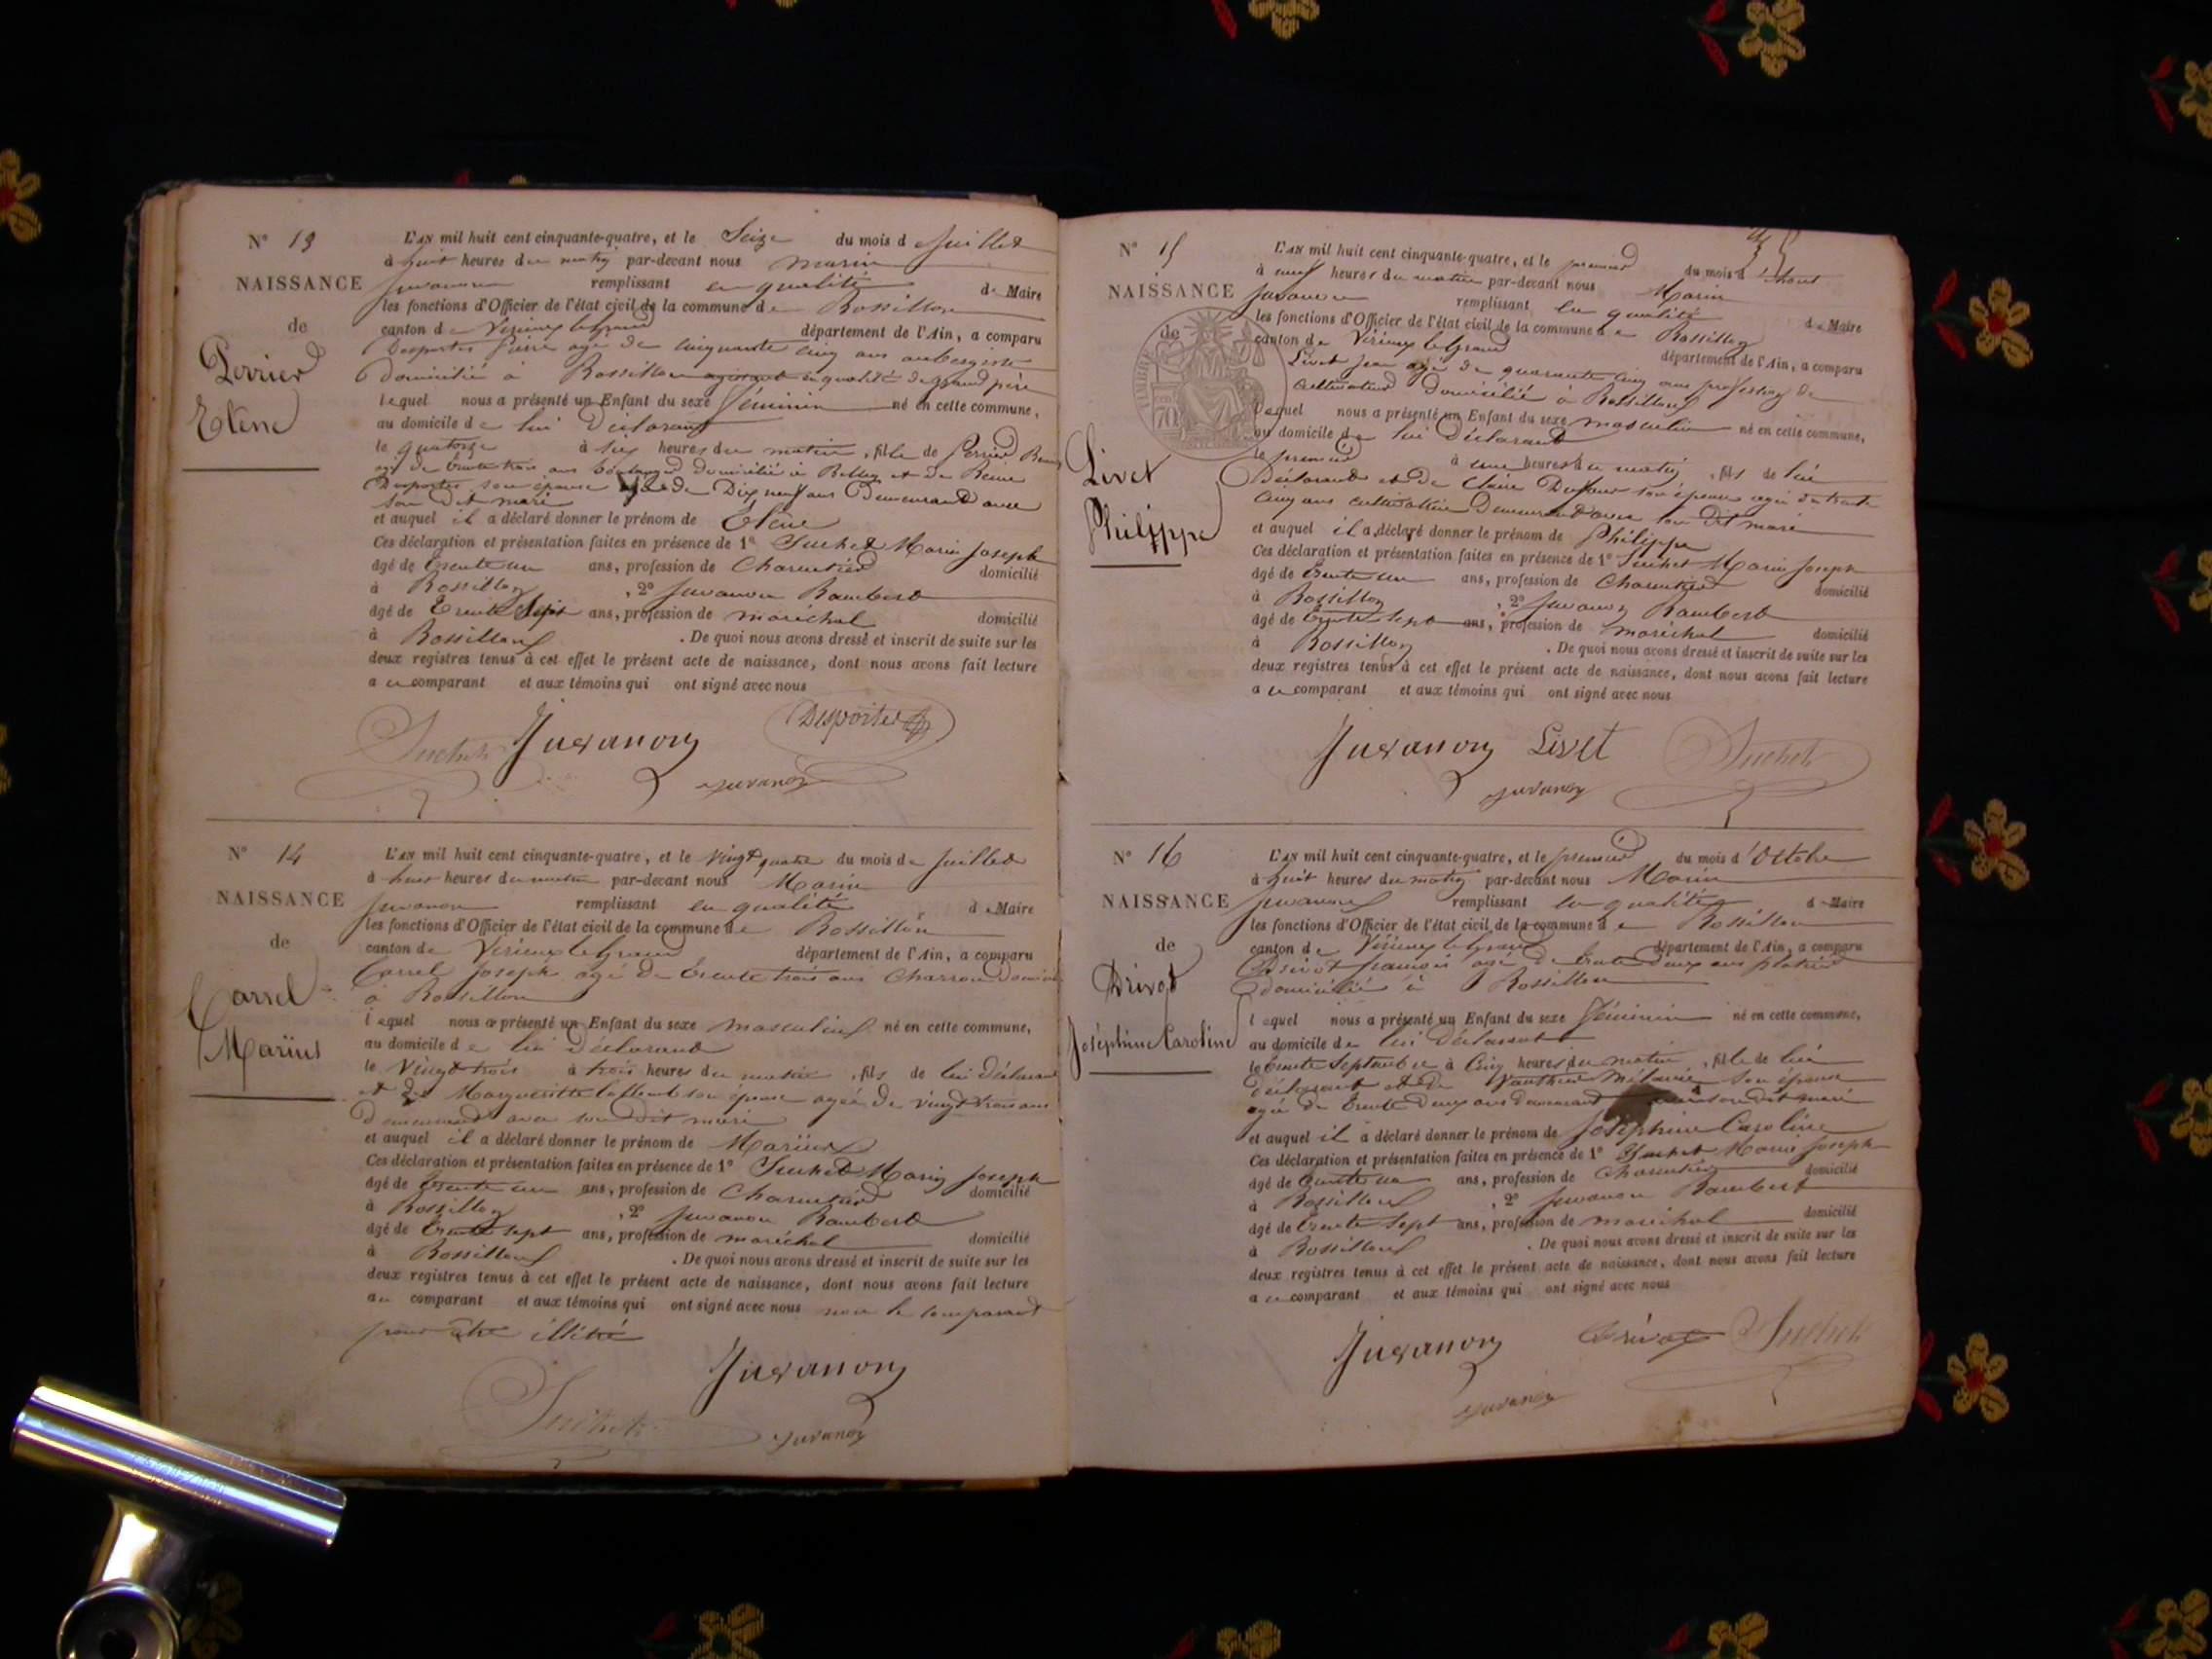 N° 13
NAISSANCE
de
Perrier
Elène
L'AN mil huit cent cinquante-quatre, et le Seize du mois de Juillet
à huit heures du matin par-devant nous Marin
Juvanon remplissant en qualité de Maire
les fonctions d'Officier de l'état civil de la commune de Rossillon
canton de Virieux le grand département de l'Ain, a comparu
Desportes Pierre agé de cinquante cinq ans aubergiste
Domicilié à Rossillon agissant en qualité de grand père
lequel nous a présenté un Enfant du sexe féminin né en cette commune,
au domicile de lui Déclarant
le quatorze à six heures du matin, fille de Perrier
agé de trente trois ans boulanger domicilié à Belley et de Reine
Desportes son épouse agée de Dix neuf ans Demeurant avec
son dit mari
et auquel il a déclaré donner le prénom de Elène
Ces déclaration et présentation faites en présence de 1° Suchet Marin Joseph
âgé de trente un ans, profession de Charcutier domicilié
à Rossillon, 2° Juvanon Rambert
âgé de trente sept ans, profession de maréchal domicilié
à Rossillon. De quoi nous avons dressé et inscrit de suite sur les
deux registres tenus à cet effet le présent acte de naissance, dont nous avons fait lecture
au comparant et aux témoins qui ont signé avec nous
Suchet Juvanon Desportes
Juvanon
N° 14
NAISSANCE
de
Carrel
Mariüs
L'AN mil huit cent cinquante-quatre, et le vingt quatre du mois de Juillet
à huit heures du matin par-devant nous Marin
Juvanon remplissant en qualité de Maire
les fonctions d'Officier de l'état civil de la commune de Rossillon
canton de Virieux le grand département de l'Ain, a comparu
Carrel Joseph agé de trente trois ans Charron
à Rossillon
lequel nous a présenté un Enfant du sexe masculin né en cette commune,
au domicile de lui Déclarant
le vingt trois à trois heures du matin, fils de lui Déclarant
et de Margueritte son épouse agée de vingt trois ans
Demeurant avec son dit mari
et auquel il a déclaré donner le prénom de Mariüs
Ces déclaration et présentation faites en présence de 1° Suchet Marin Joseph
âgé de trente un ans, profession de Charcutier domicilié
à Rossillon, 2° Juvanon Rambert
âgé de trente sept ans, profession de maréchal domicilié
à Rossillon. De quoi nous avons dressé et inscrit de suite sur les
deux registres tenus à cet effet le présent acte de naissance, dont nous avons fait lecture
au comparant et aux témoins qui ont signé avec nous non le comparant
pour être illitré
Juvanon
Suchet Juvanon
N° 15
NAISSANCE
de
TIMBRE
70
Livet
Philippe
L'AN mil huit cent cinquante-quatre, et le premier du mois d'Aout
à neuf heures du matin par-devant nous Marin
Juvanon remplissant en qualité de Maire
les fonctions d'Officier de l'état civil de la commune de Rossillon
canton de Virieux le grand département de l'Ain, a comparu
Livet Jean agé de quarante cinq ans profession de
Cultivateur domicilié à Rossillon
lequel nous a présenté un Enfant du sexe masculin né en cette commune,
au domicile de lui Déclarant
le premier à une heures du matin, fils de lui
Déclarant et de Claire Dufour son épouse agée de trente
cinq ans cultivatrice Demeurant avec son dit mari
et auquel il a déclaré donner le prénom de Philippe
Ces déclaration et présentation faites en présence de 1° Suchet Marin Joseph
âgé de trente un ans, profession de Charcutier domicilié
à Rossillon, 2° Juvanon Rambert
âgé de trente sept ans, profession de maréchal domicilié
à Rossillon. De quoi nous avons dressé et inscrit de suite sur les
deux registres tenus à cet effet le présent acte de naissance, dont nous avons fait lecture
au comparant et aux témoins qui ont signé avec nous
Juvanon Livet Suchet
Juvanon
N° 16
NAISSANCE
de
Drivot
Joséphine Caroline
L'AN mil huit cent cinquante-quatre, et le premier du mois d'Octobre
à huit heures du matin par-devant nous Marin
Juvanon remplissant en qualité de Maire
les fonctions d'Officier de l'état civil de la commune de Rossillon
canton de Virieux le grand département de l'Ain, a comparu
Drivot françois agé de trente deux ans platrier
domicilié à Rossillon
lequel nous a présenté un Enfant du sexe féminin né en cette commune,
au domicile de lui Déclarant
le trente Septembre à Cinq heures du matin, fille de lui
déclarant et de Mélanie son épouse
agée de trente deux ans demeurant avec son dit mari
et auquel il a déclaré donner le prénom de Joséphine Caroline
Ces déclaration et présentation faites en présence de 1° Suchet Marin Joseph
âgé de trente un ans, profession de Charcutier domicilié
à Rossillon, 2° Juvanon Rambert
âgé de trente sept ans, profession de maréchal domicilié
à Rossillon. De quoi nous avons dressé et inscrit de suite sur les
deux registres tenus à cet effet le présent acte de naissance, dont nous avons fait lecture
au comparant et aux témoins qui ont signé avec nous
Juvanon Drivot Suchet
Juvanon